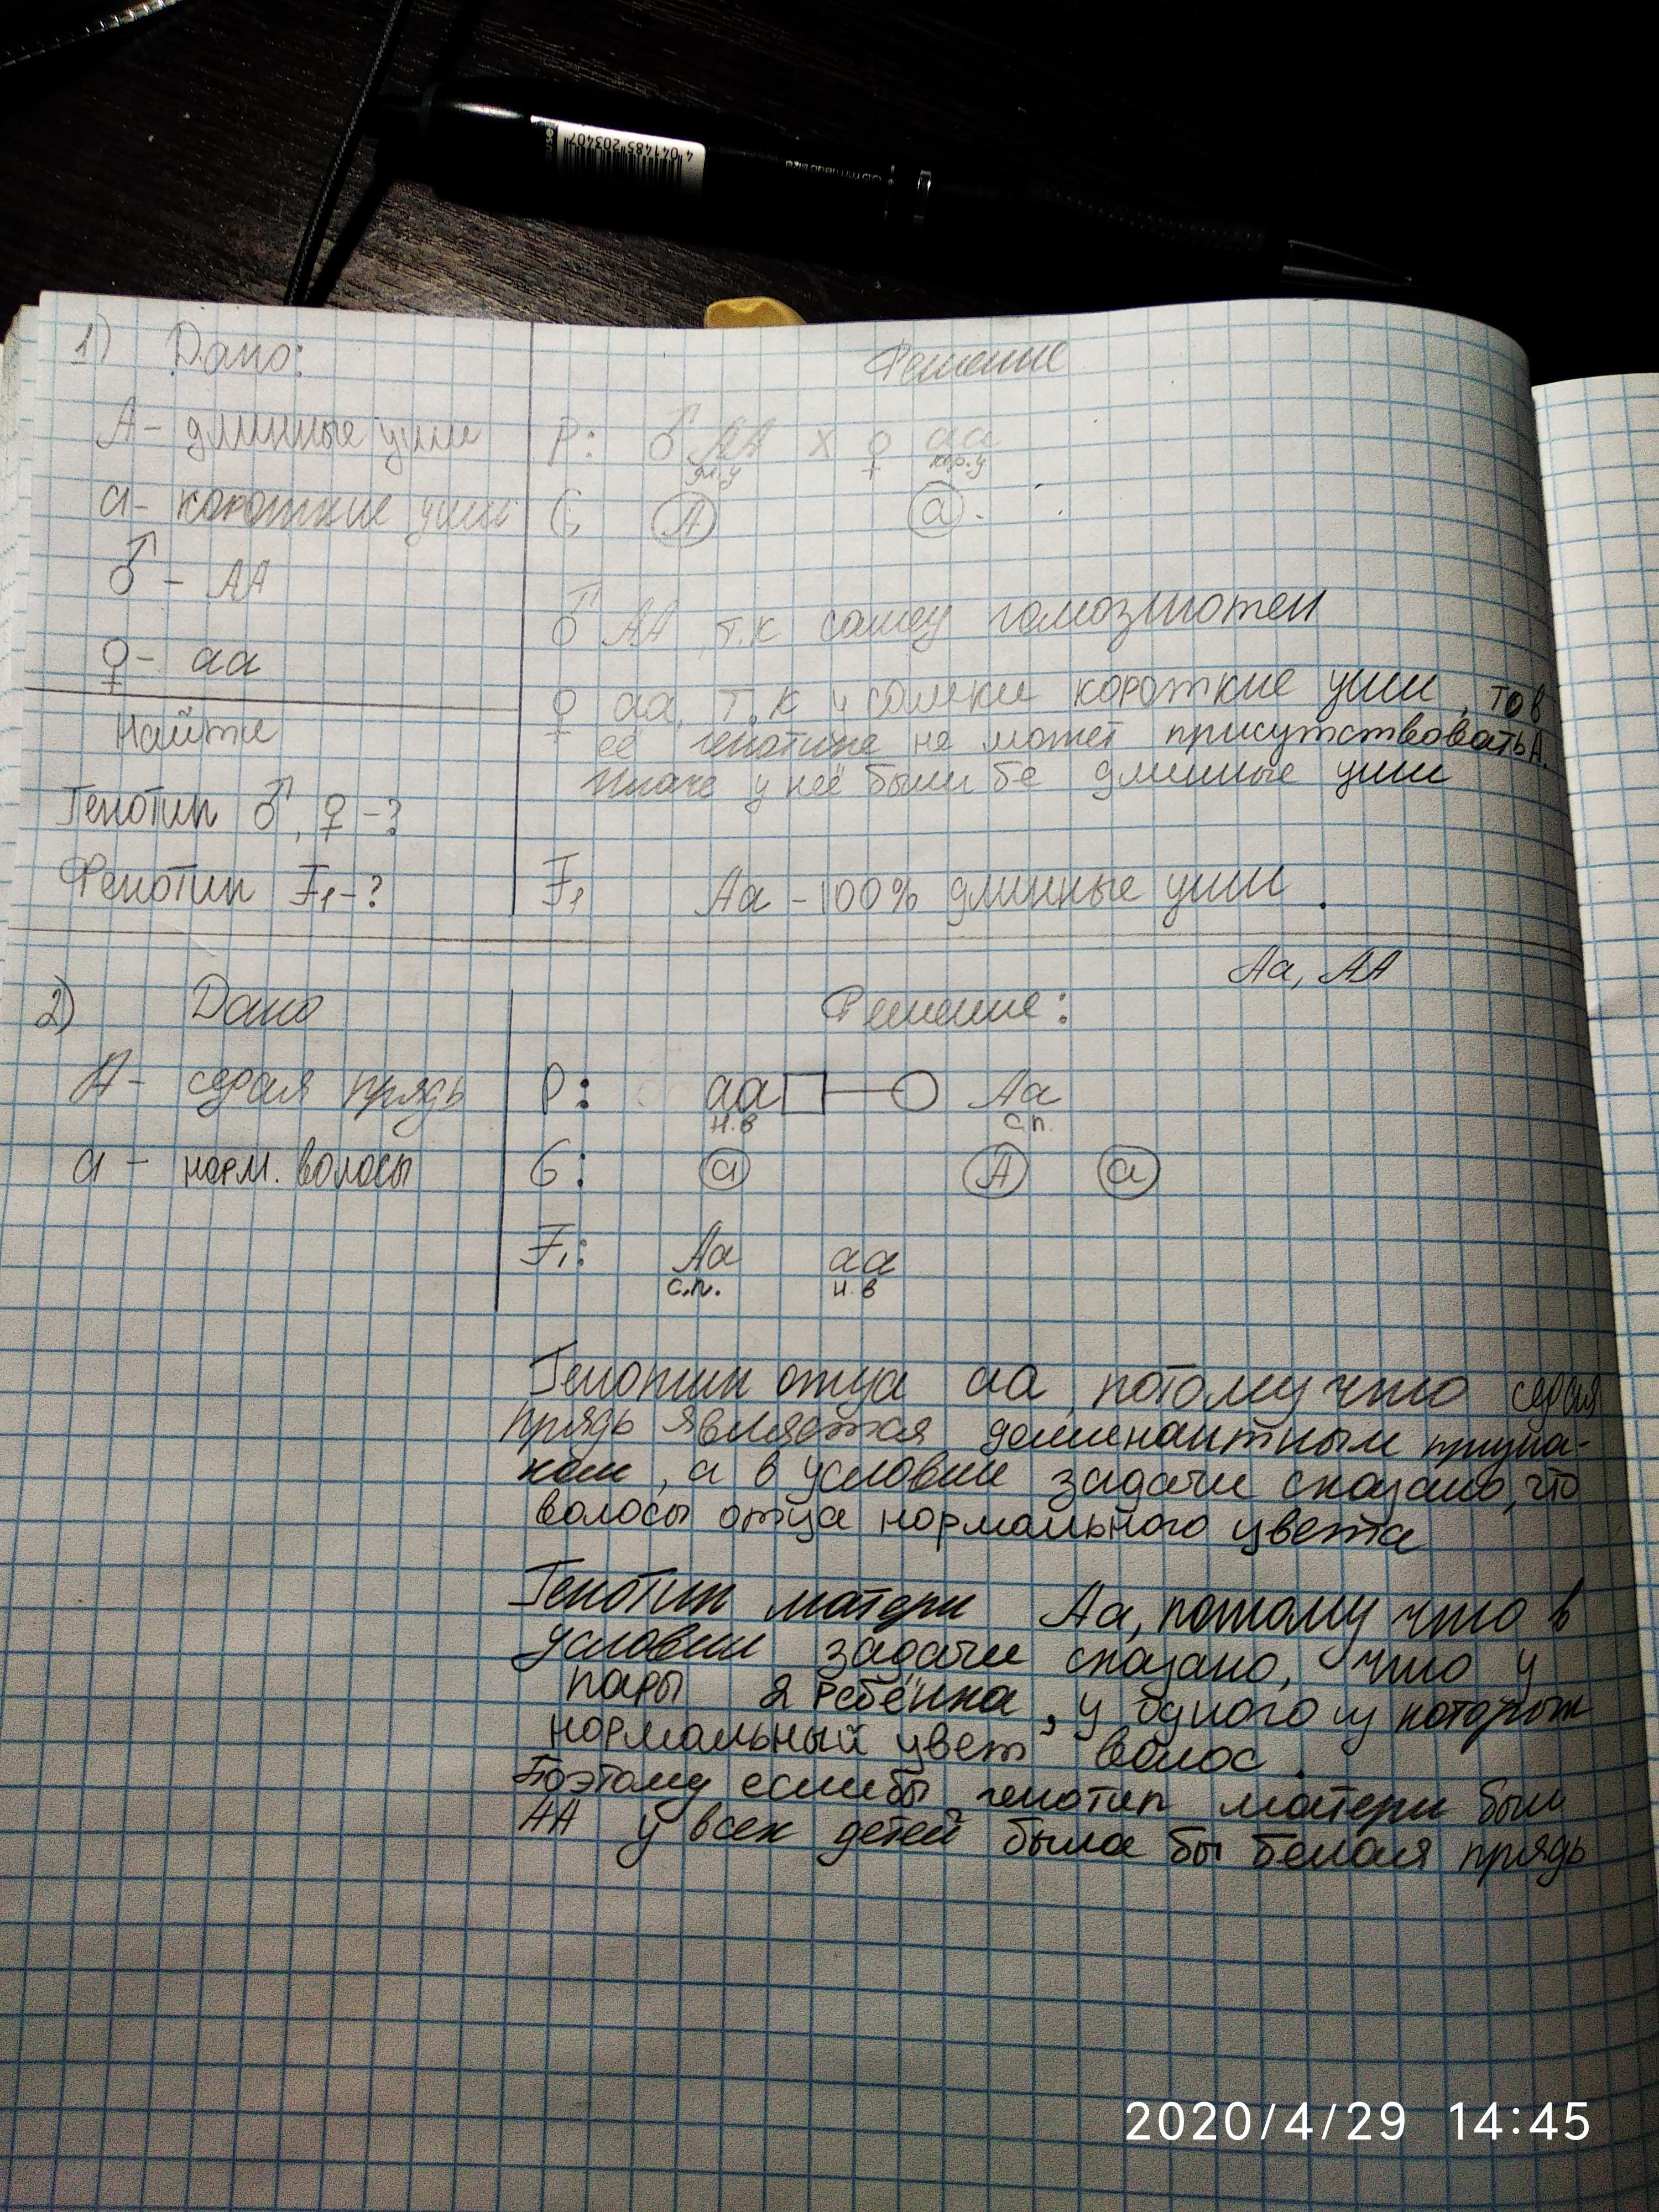 4 041485 203407
1) Дано:
Решение
А - длинные уши
Р: ♂ АА х ♀ аа
дл.у кор.у
а - короткие уши
G А а
♂ - АА
♂ АА, т.к самец гомозиготен
♀ - аа
♀ аа, т.к у самки короткие уши, то в
её генотипе не может присутствовать А.
Иначе у неё были бе длинные уши
Найти
Генотип ♂, ♀ - ?
Фенотип F1 - ?
F1 Аа - 100% длинные уши.
Аа, АА
2) Дано
Решение:
А - седая прядь
Р: аа Аа
н.в с.п.
а - норм. волосы
G: а А а
F1: Аа аа
с.п. н.в
Генотип отца аа, потому что седая
прядь является доминантным призна-
ком, а в условии задачи сказано, что
волосы отца нормального цвета
Генотип матери Аа, потому что в
условии задачи сказано, что у
пары 2 ребёнка, у одного из которых
нормальный цвет волос.
Поэтому если бы генотип матери был
АА у всех детей была бы белая прядь
2020/4/29 14:45